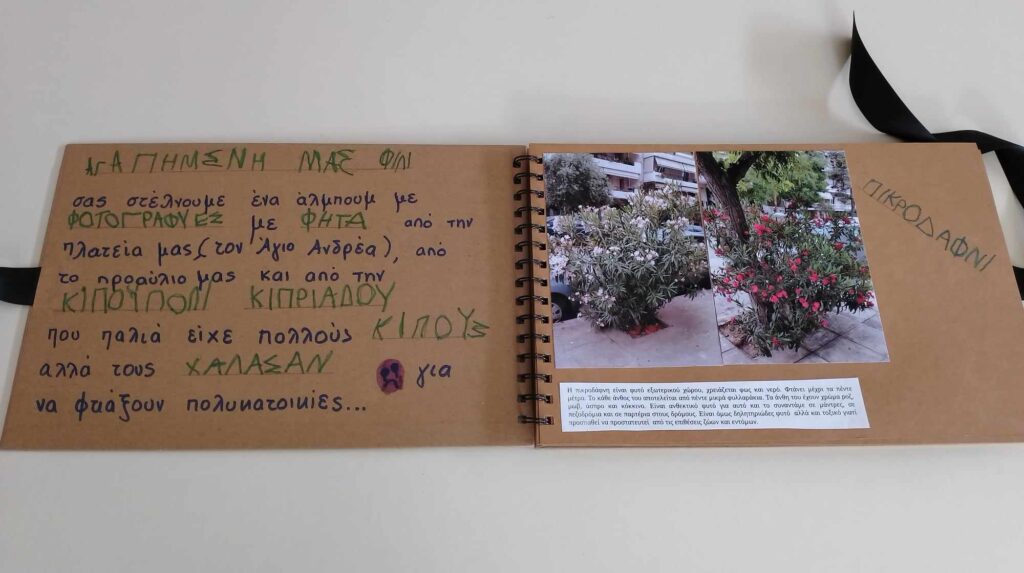 ΑΓΑΠΗΜΕΝΗ ΜΑΣ ΦΙΛΙ
σας στέλνουμε ένα άλμπουμ με
ΦΟΤΟΓΡΑΦΥΕΣ με ΦΗΤΑ από την
πλατεία μας (τον Άγιο Ανδρέα), από
το προαύλιο μας και από την
ΚΙΠΟΥΠΟΛΙ ΚΙΠΡΙΑΔΟΥ
που παλιά είχε πολλούς ΚΙΠΟΥΣ
αλλά τους ΧΑΛΑΣΑΝ για
να φτιάξουν πολυκατοικίες...
ΠΙΚΡΟΔΑΦΝΙ
Η πικροδάφνη είναι φυτό εξωτερικού χώρου, χρειάζεται φως και νερό. Φτάνει μέχρι τα πέντε
μέτρα. Το κάθε άνθος του αποτελείται από πέντε μικρά φυλλαράκια. Τα άνθη του έχουν χρώμα ροζ,
μωβ, άσπρο και κόκκινο. Είναι ανθεκτικό φυτό για αυτό και το συναντάμε σε μάντρες, σε
πεζοδρόμια και σε παρτέρια στους δρόμους. Είναι όμως δηλητηριώδες φυτό αλλά και τοξικό γιατί
προσπαθεί να προστατευτεί από τις επιθέσεις ζώων και εντόμων.